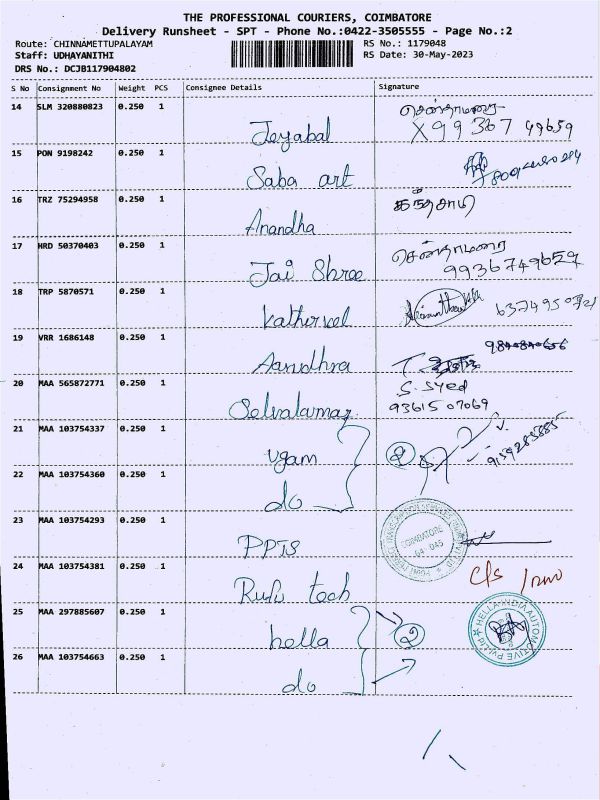 THE PROFESSIONAL COURIERS, COIMBATORE
Delivery Runsheet - SPT - Phone No.:0422-3505555 - Page No.:2
Route: CHINNAMETTUPALAYAM RS No.: 1179048
Staff: UDHAYANITHI RS Date: 30-May-2023
DRS No.: DCJB117904802
S No Consignment No Weight PCS Consignee Details Signature
14 SLM 320880823 0.250 1 Jeyabal செந்தாமரை
X 99367 49659
15 PON 9198242 0.250 1 Saba art
16 TRZ 75294958 0.250 1 Anandha கந்தசாமி
17 HRD 50370403 0.250 1 Jai Shree செந்தாமரை
9936749659
18 TRP 5870571 0.250 1 Kathirvel
19 VRR 1686148 0.250 1 Aandhra
20 MAA 565872771 0.250 1 Selvalamaz S. Syed
93615 07069
21 MAA 103754337 0.250 1 ugam 2 9159285885
22 MAA 103754360 0.250 1 do
23 MAA 103754293 0.250 1 PPTS COIMBATORE
641 045
24 MAA 103754381 0.250 1 Rufu tech c/s
25 MAA 297885607 0.250 1 hella 2 HELLA INDIA AUTOMOTIVE Pvt.Ltd
26 MAA 103754663 0.250 1 do